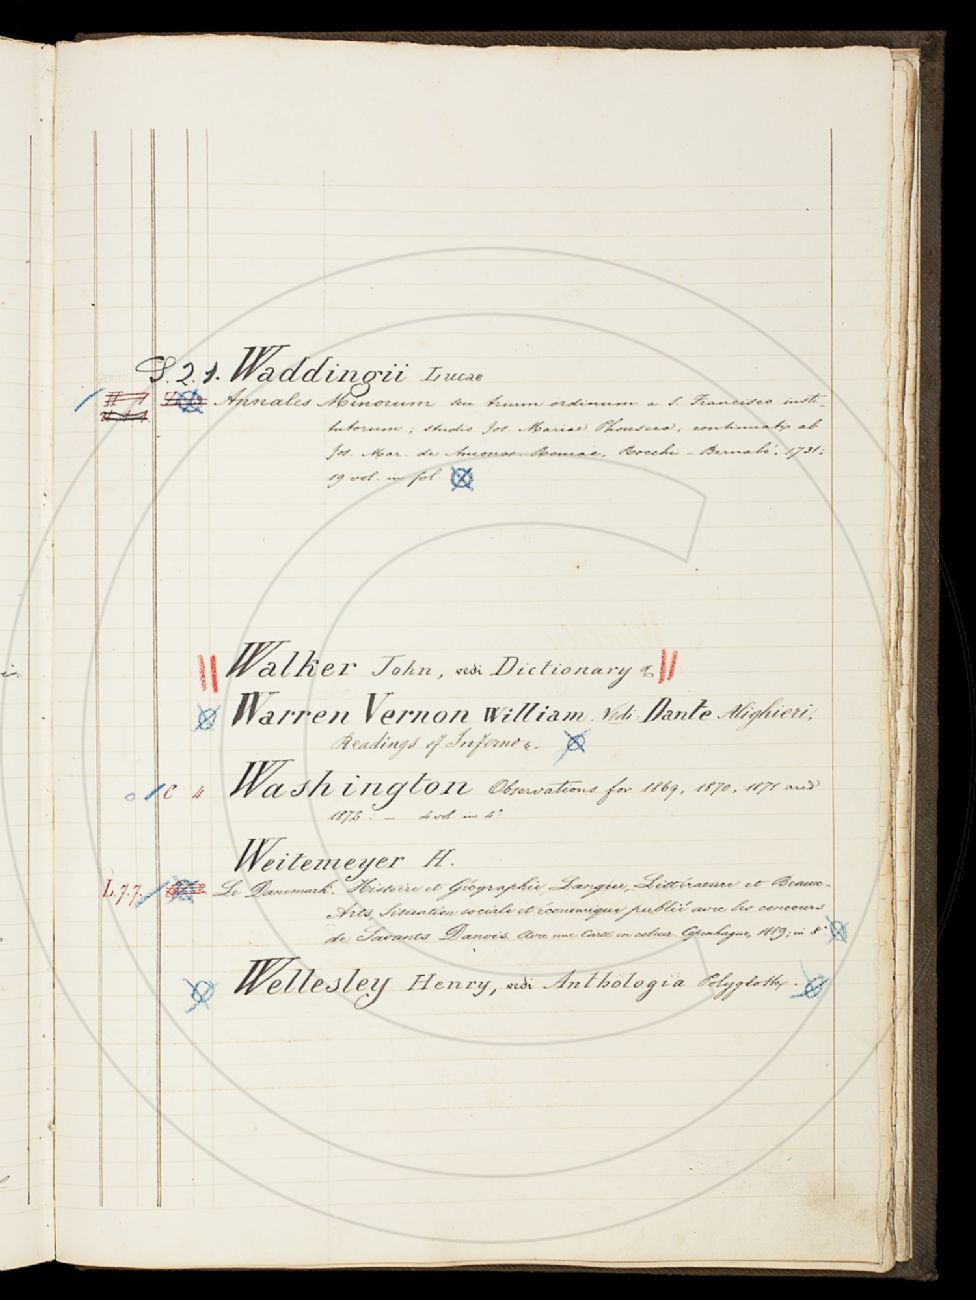 S. 2. 1. Waddingii Lucae
Annales Minorum seu trium ordinum a S. Francisco insti-
tutorum; studio Jos. Mariae continuat. ab
Jos. Mar. de Ancona. Romae, Rocchi - Bernabò. 1731;
19 vol. in fol.
Walker John, vedi Dictionary &
Warren Vernon William. Vedi Dante Alighieri.
Readings of Inferno &.
C " Washington Observations for 1869, 1870, 1871 and
4 vol. in 4.°
Weitemeyer H.
L. 7. 7. Le Danemark. Histoire et Géographie, Langue, Littérature et Beaux-
Arts, Situation sociale et économique publié avec les concours
de Savants Danois. Avec une Carte en couleur. Copenhague, 1889; in 8°
Wellesley Henry, vedi Anthologia Polyglotta.